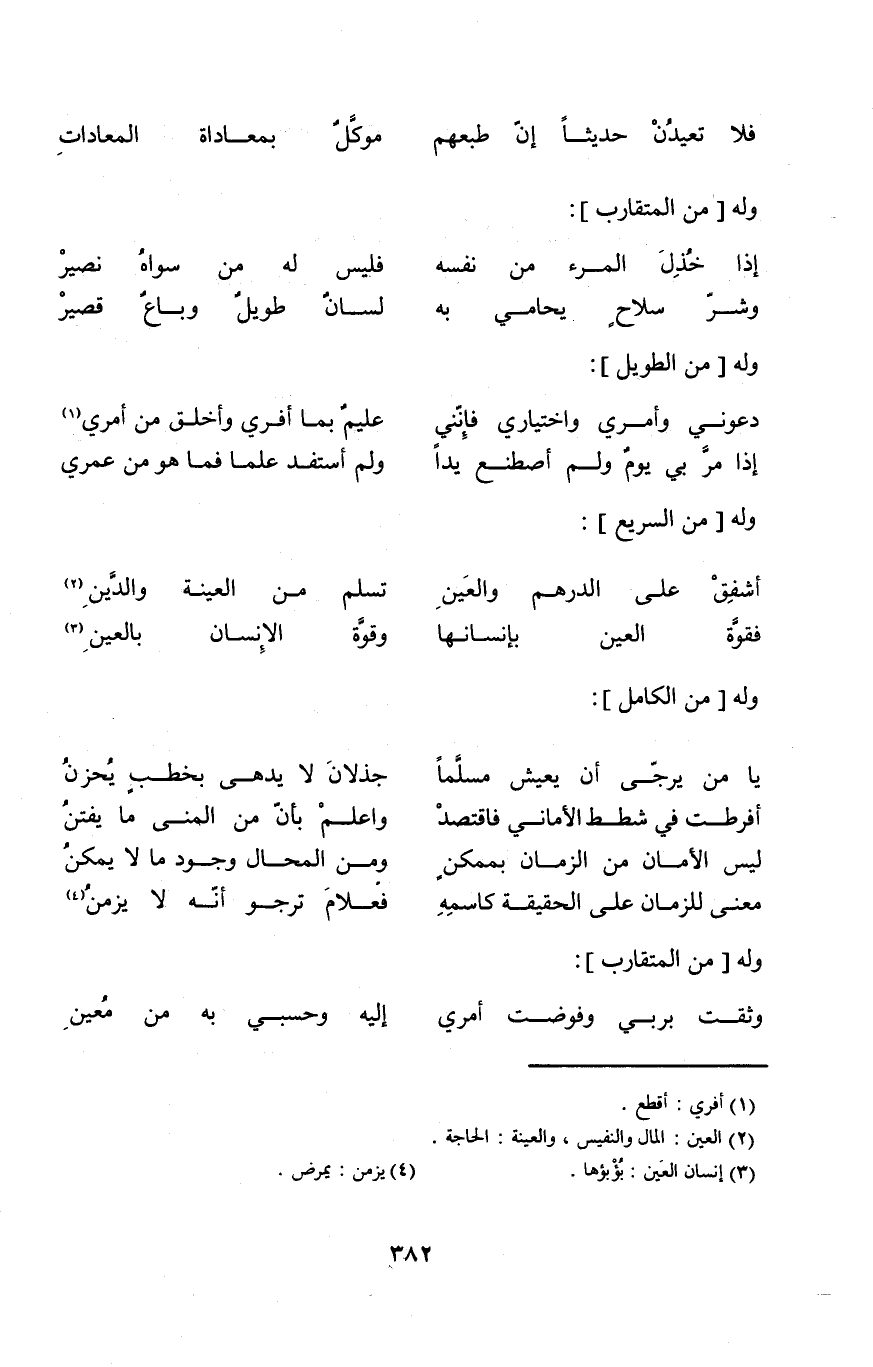 فلا تعيدُنْ حديثاً إنّ طبعهم موكَّلٌ بمعاداة المعاداتِ
وله [ من المتقارب ] :
إذا خُذِلَ المرء من نفسه فليس له من سواهُ نصيرْ
وشرّ سلاحٍ يحامي به لسانٌ طويلٌ وباعٌ قصيرْ
وله [ من الطويل ] :
دعوني وأمري واختياري فإنّني عليمٌ بما أفري وأخلق من أمري(١)
إذا مرَّ بي يومٌ ولم أصطنع يداً ولم أستفد علما فما هو من عمري
وله [ من السريع ] :
أشفِقْ على الدرهم والعَينِ تسلم من العينة والدَّينِ(٢)
فقوَّة العين بإنسانها وقوَّة الإنسان بالعينِ(٣)
وله [ من الكامل ] :
يا من يرجّى أن يعيش مسلَّماً جذلانَ لا يدهى بخطبٍ يُحزنُ
أفرطت في شطط الأماني فاقتصدْ واعلمْ بأنّ من المنى ما يفتنُ
ليس الأمان من الزمان بممكنٍ ومن المحال وجود ما لا يمكنُ
معنى للزمان على الحقيقة كاسمِهِ فعلامَ ترجو أنّه لا يزمنُ(٤)
وله [ من المتقارب ] :
وثقت بربي وفوضت أمري إليه وحسبي به من مُعينِ
(١) أفري : أقطع .
(٢) العين : المال والنفيس ، والعينة : الحاجة .
(٣) إنسان العَين : بُؤْبؤها . (٤) يزمن : يمرض .
٣٨٢